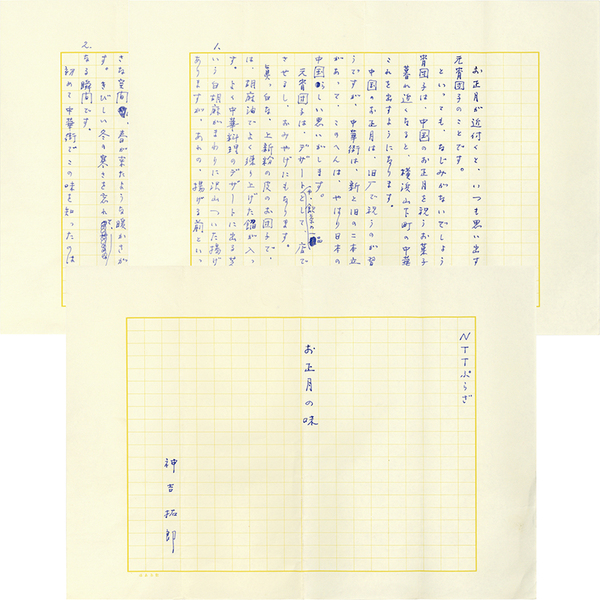 NTTぷらざ
お正月の味
神吉拓郎
1.
お正月が近付くと、いつも思い出す
元宵団子のことです。
といっても、なじみがないでしょう
宵団子は、中国のお正月を祝うお菓子
暮れ近くなると、横浜山下町の中華
これを出すようになります。
中国のお正月は、旧Jで祝うのが習
うですが、中華街は、新と旧の二本立
があって、このへんは、やはり日本の
中国らしい思いがします。
元宵団子は、デザートとして、店で
させるし、おみやげにもなります。
真っ白な、上新粉の皮のお団子で、
は、胡麻油でよく煉り上げた餡が入っ
す。よく中華料理のデザートに出る
いう白胡麻がまわりに沢山ついた揚げ
ありますが、あれの、揚げる前といっ
2.
さな空間、春が来たような暖かさが
す。きびしい冬の寒さを忘れ
なる瞬間です。
初めて中華街でこの味を知ったのは